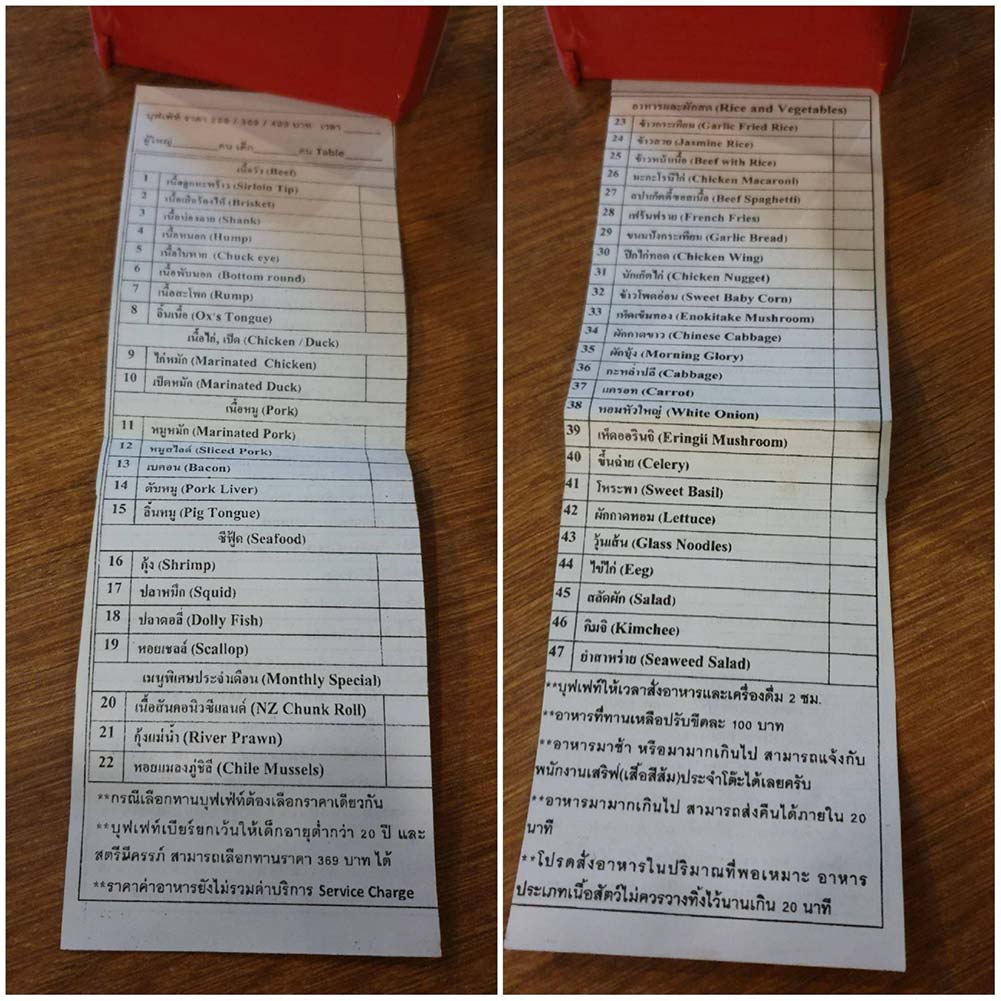 บุฟเฟ่ท์ ราคา 299 / 369 / 499 บาท เวลา
ผู้ใหญ่ คน เด็ก คน Table
เนื้อวัว (Beef)
1 เนื้อลูกมะพร้าว (Sirloin Tip)
2 เนื้อเสือร้องไห้ (Brisket)
3 เนื้อน่องลาย (Shank)
4 เนื้อหนอก (Hump)
5 เนื้อใบพาย (Chuck eye)
6 เนื้อพับนอก (Bottom round)
7 เนื้อสะโพก (Rump)
8 ลิ้นเนื้อ (Ox's Tongue)
เนื้อไก่, เป็ด (Chicken / Duck)
9 ไก่หมัก (Marinated Chicken)
10 เป็ดหมัก (Marinated Duck)
เนื้อหมู (Pork)
11 หมูหมัก (Marinated Pork)
12 หมูสไลด์ (Sliced Pork)
13 เบคอน (Bacon)
14 ตับหมู (Pork Liver)
15 ลิ้นหมู (Pig Tongue)
ซีฟู้ด (Seafood)
16 กุ้ง (Shrimp)
17 ปลาหมึก (Squid)
18 ปลาดอลี่ (Dolly Fish)
19 หอยเชลล์ (Scallop)
เมนูพิเศษประจำเดือน (Monthly Special)
20 เนื้อสันคอนิวซีแลนด์ (NZ Chunk Roll)
21 กุ้งแม่น้ำ (River Prawn)
22 หอยแมลงภู่ชิลี (Chile Mussels)
**กรณีเลือกทานบุฟเฟ่ท์ต้องเลือกราคาเดียวกัน
**บุฟเฟท์เบียร์ยกเว้นให้เด็กอายุต่ำกว่า 20 ปี และ
สตรีมีครรภ์ สามารถเลือกทานราคา 369 บาท ได้
**ราคาค่าอาหารยังไม่รวมค่าบริการ Service Charge
อาหารและผักสด (Rice and Vegetables)
23 ข้าวกระเทียม (Garlic Fried Rice)
24 ข้าวสวย (Jasmine Rice)
25 ข้าวหน้าเนื้อ (Beef with Rice)
26 มะกะโรนีไก่ (Chicken Macaroni)
27 สปาเก็ตตี้ซอสเนื้อ (Beef Spaghetti)
28 เฟร้นฟราย (French Fries)
29 ขนมปังกระเทียม (Garlic Bread)
30 ปีกไก่ทอด (Chicken Wing)
31 นักเก็ตไก่ (Chicken Nugget)
32 ข้าวโพดอ่อน (Sweet Baby Corn)
33 เห็ดเข็มทอง (Enokitake Mushroom)
34 ผักกาดขาว (Chinese Cabbage)
35 ผักบุ้ง (Morning Glory)
36 กะหล่ำปลี (Cabbage)
37 แครอท (Carrot)
38 หอมหัวใหญ่ (White Onion)
39 เห็ดออรินจิ (Eringii Mushroom)
40 ขึ้นฉ่าย (Celery)
41 โหระพา (Sweet Basil)
42 ผักกาดหอม (Lettuce)
43 วุ้นเส้น (Glass Noodles)
44 ไข่ไก่ (Eeg)
45 สลัดผัก (Salad)
46 กิมจิ (Kimchee)
47 ยำสาหร่าย (Seaweed Salad)
**บุฟเฟท์ให้เวลาสั่งอาหารและเครื่องดื่ม 2 ชม.
**อาหารที่ทานเหลือปรับขีดละ 100 บาท
**อาหารมาช้า หรือมามากเกินไป สามารถแจ้งกับ
พนักงานเสริฟ(เสื้อสีส้ม)ประจำโต๊ะได้เลยครับ
**อาหารมามากเกินไป สามารถส่งคืนได้ภายใน 20
นาที
**โปรดสั่งอาหารในปริมาณที่พอเหมาะ อาหาร
ประเภทเนื้อสัตว์ไม่ควรวางทิ้งไว้นานเกิน 20 นาที